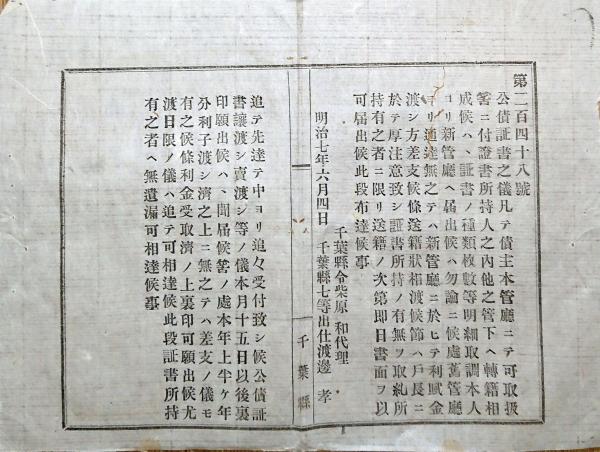 第二百四十八號
公債証書之儀凡テ債主本管廳ニテ可取扱
筈ニ付證書所持人之內他之管下ヘ轉籍相
成候ハヽ証書ノ種類枚數等明細取調本人
ヨリ新管廳ヘ届出候ハ勿論ニ候處舊管廳
ヨリ通達無之テハ新管廳ニ於ヒテ利賦金
渡シ方差支候條送籍狀相渡候節ハ戶長ニ
於テ厚注意致シ証書所持ノ有無ヲ取糺所
持有之者ニ限リ送籍ノ次第即日書面ヲ以
可届出候此段布達候事
千葉縣令柴原和代理
明治七年六月四日 千葉縣七等出仕渡邊 孝
千葉縣
追テ先達テ中ヨリ追々受付致シ候公債証
書讓渡シ賣渡シ等ノ儀本月十五日以後裏
印願出候ハヽ聞届候筈ノ處本年上半ケ年
分利子渡シ濟之上ニ無之テハ差支ノ儀モ
有之候條利金受取濟ノ上裏印可願出候尤
渡日限ノ儀ハ追テ可相達候此段証書所持
有之者ヘ無遺漏可相達候事